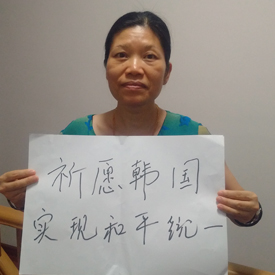 祈愿韩国
实现和平统一